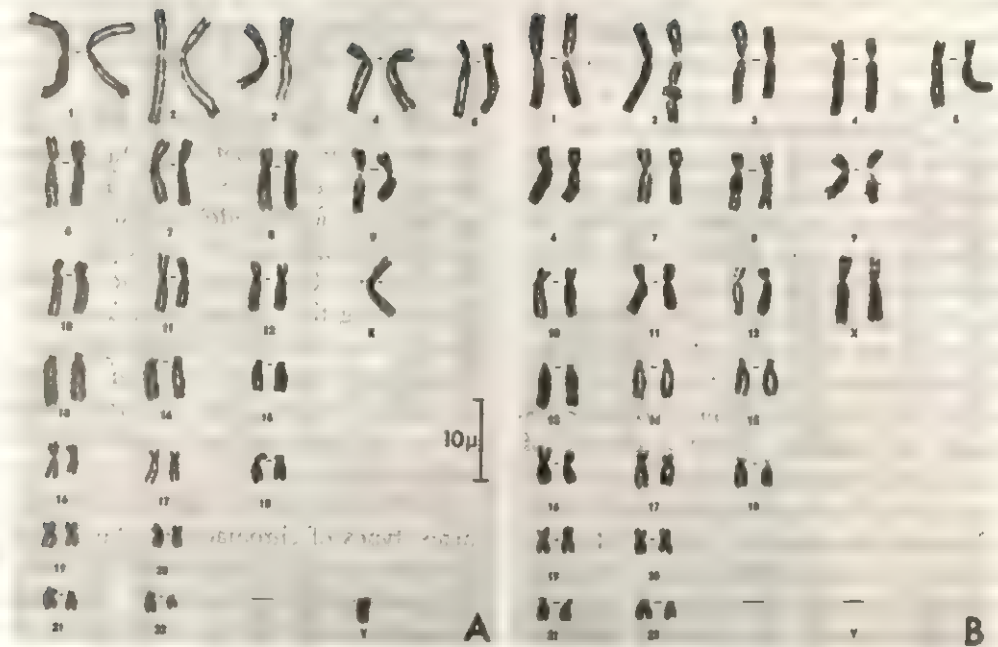 1 2 3 4 5
6 7 8 9
10 11 12 X
13 14 15
16 17 18
19 20
21 22 Y
A
10µ
1 2 3 4 5
6 7 8 9
10 11 12 X
13 14 15
16 17 18
19 20
21 22 Y
B